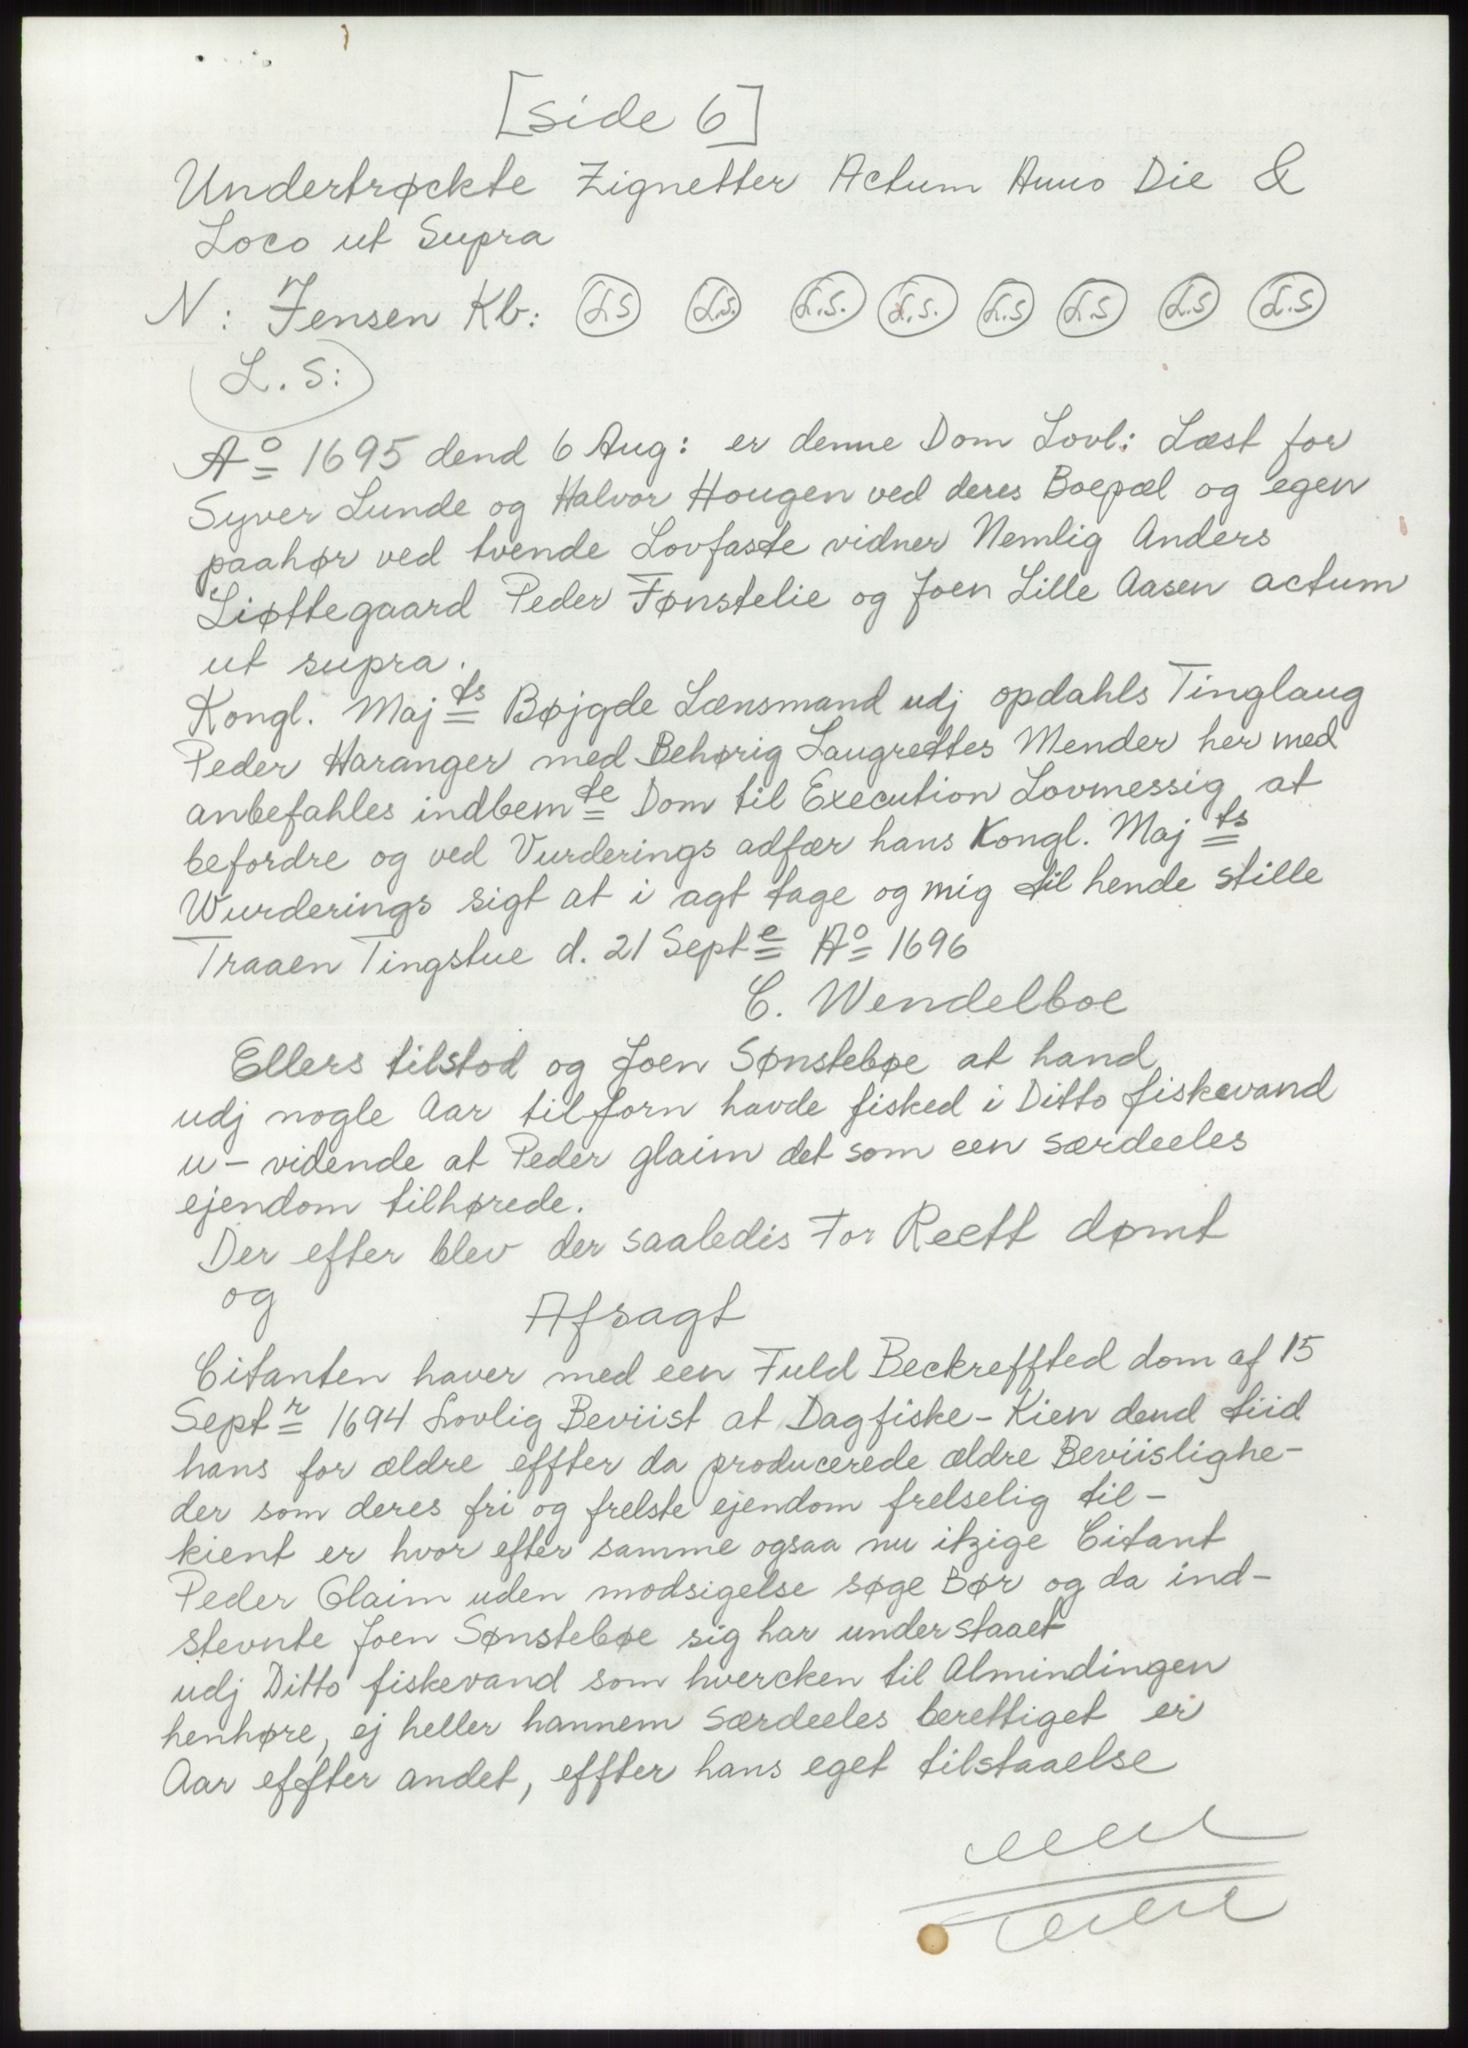 [Side 6]
Undertrøckte Zignetter Actum Anno Die &
Loco ut Supra
N: Jensen Kb: L.S L.S. L.S. L.S. L.S L.S L.S L.S
L.S:
Aº 1695 dend 6 Aug: er denne Dom Lovl: Læst for
Syver Lunde og Halvor Hougen ved deres Boepæl og egen
paahør ved tvende Lovfaste vidner Nemlig Anders
Liøttegaard Peder Fønstelie og Joen Lille Aasen actum
ut supra.
Kongl. Maj ts Bøjgde Lænsmand udj opdahls Tinglaug
Peder Haranger med Behørig Laugrettes Mender her med
anbefahles indbem te Dom til Execution Lovmessig at
befordre og ved Vurderings adfær hans Kongl. Maj ts
Wurderings sigt at i agt tage og mig til hende stille
Traaen Tingstue d. 21 Sept e Aº 1696
C. Wendelboe
Ellers tilstod og Joen Sønstebøe at hand
udj nogle Aar tilforn havde fisked i Ditto fiskevand
u-vidende at Peder glaim det som een særdeeles
ejendom tilhørede.
Der efter blev der saaledis For Reett dømt
og
Afsagt
Citanten haver med een Fuld Beckreffted dom af 15
Sept r 1694 Lovlig Beviist at Dagfiske-Kien dend tiid
hans for ældre effter da producerede ældre Beviislighe-
der som deres fri og frelste ejendom frelselig til-
kient er hvor efter samme ogsaa nu itzige Citant
Peder Glaim uden modsigelse søge Bør og da ind-
stevnte Joen Sønstebøe sig har understaaet
udj Ditto fiskevand som hvercken til Almindingen
henhøre, ej heller hannem særdeeles berettiget er
Aar effter andet, effter hans eget tilstaaelse